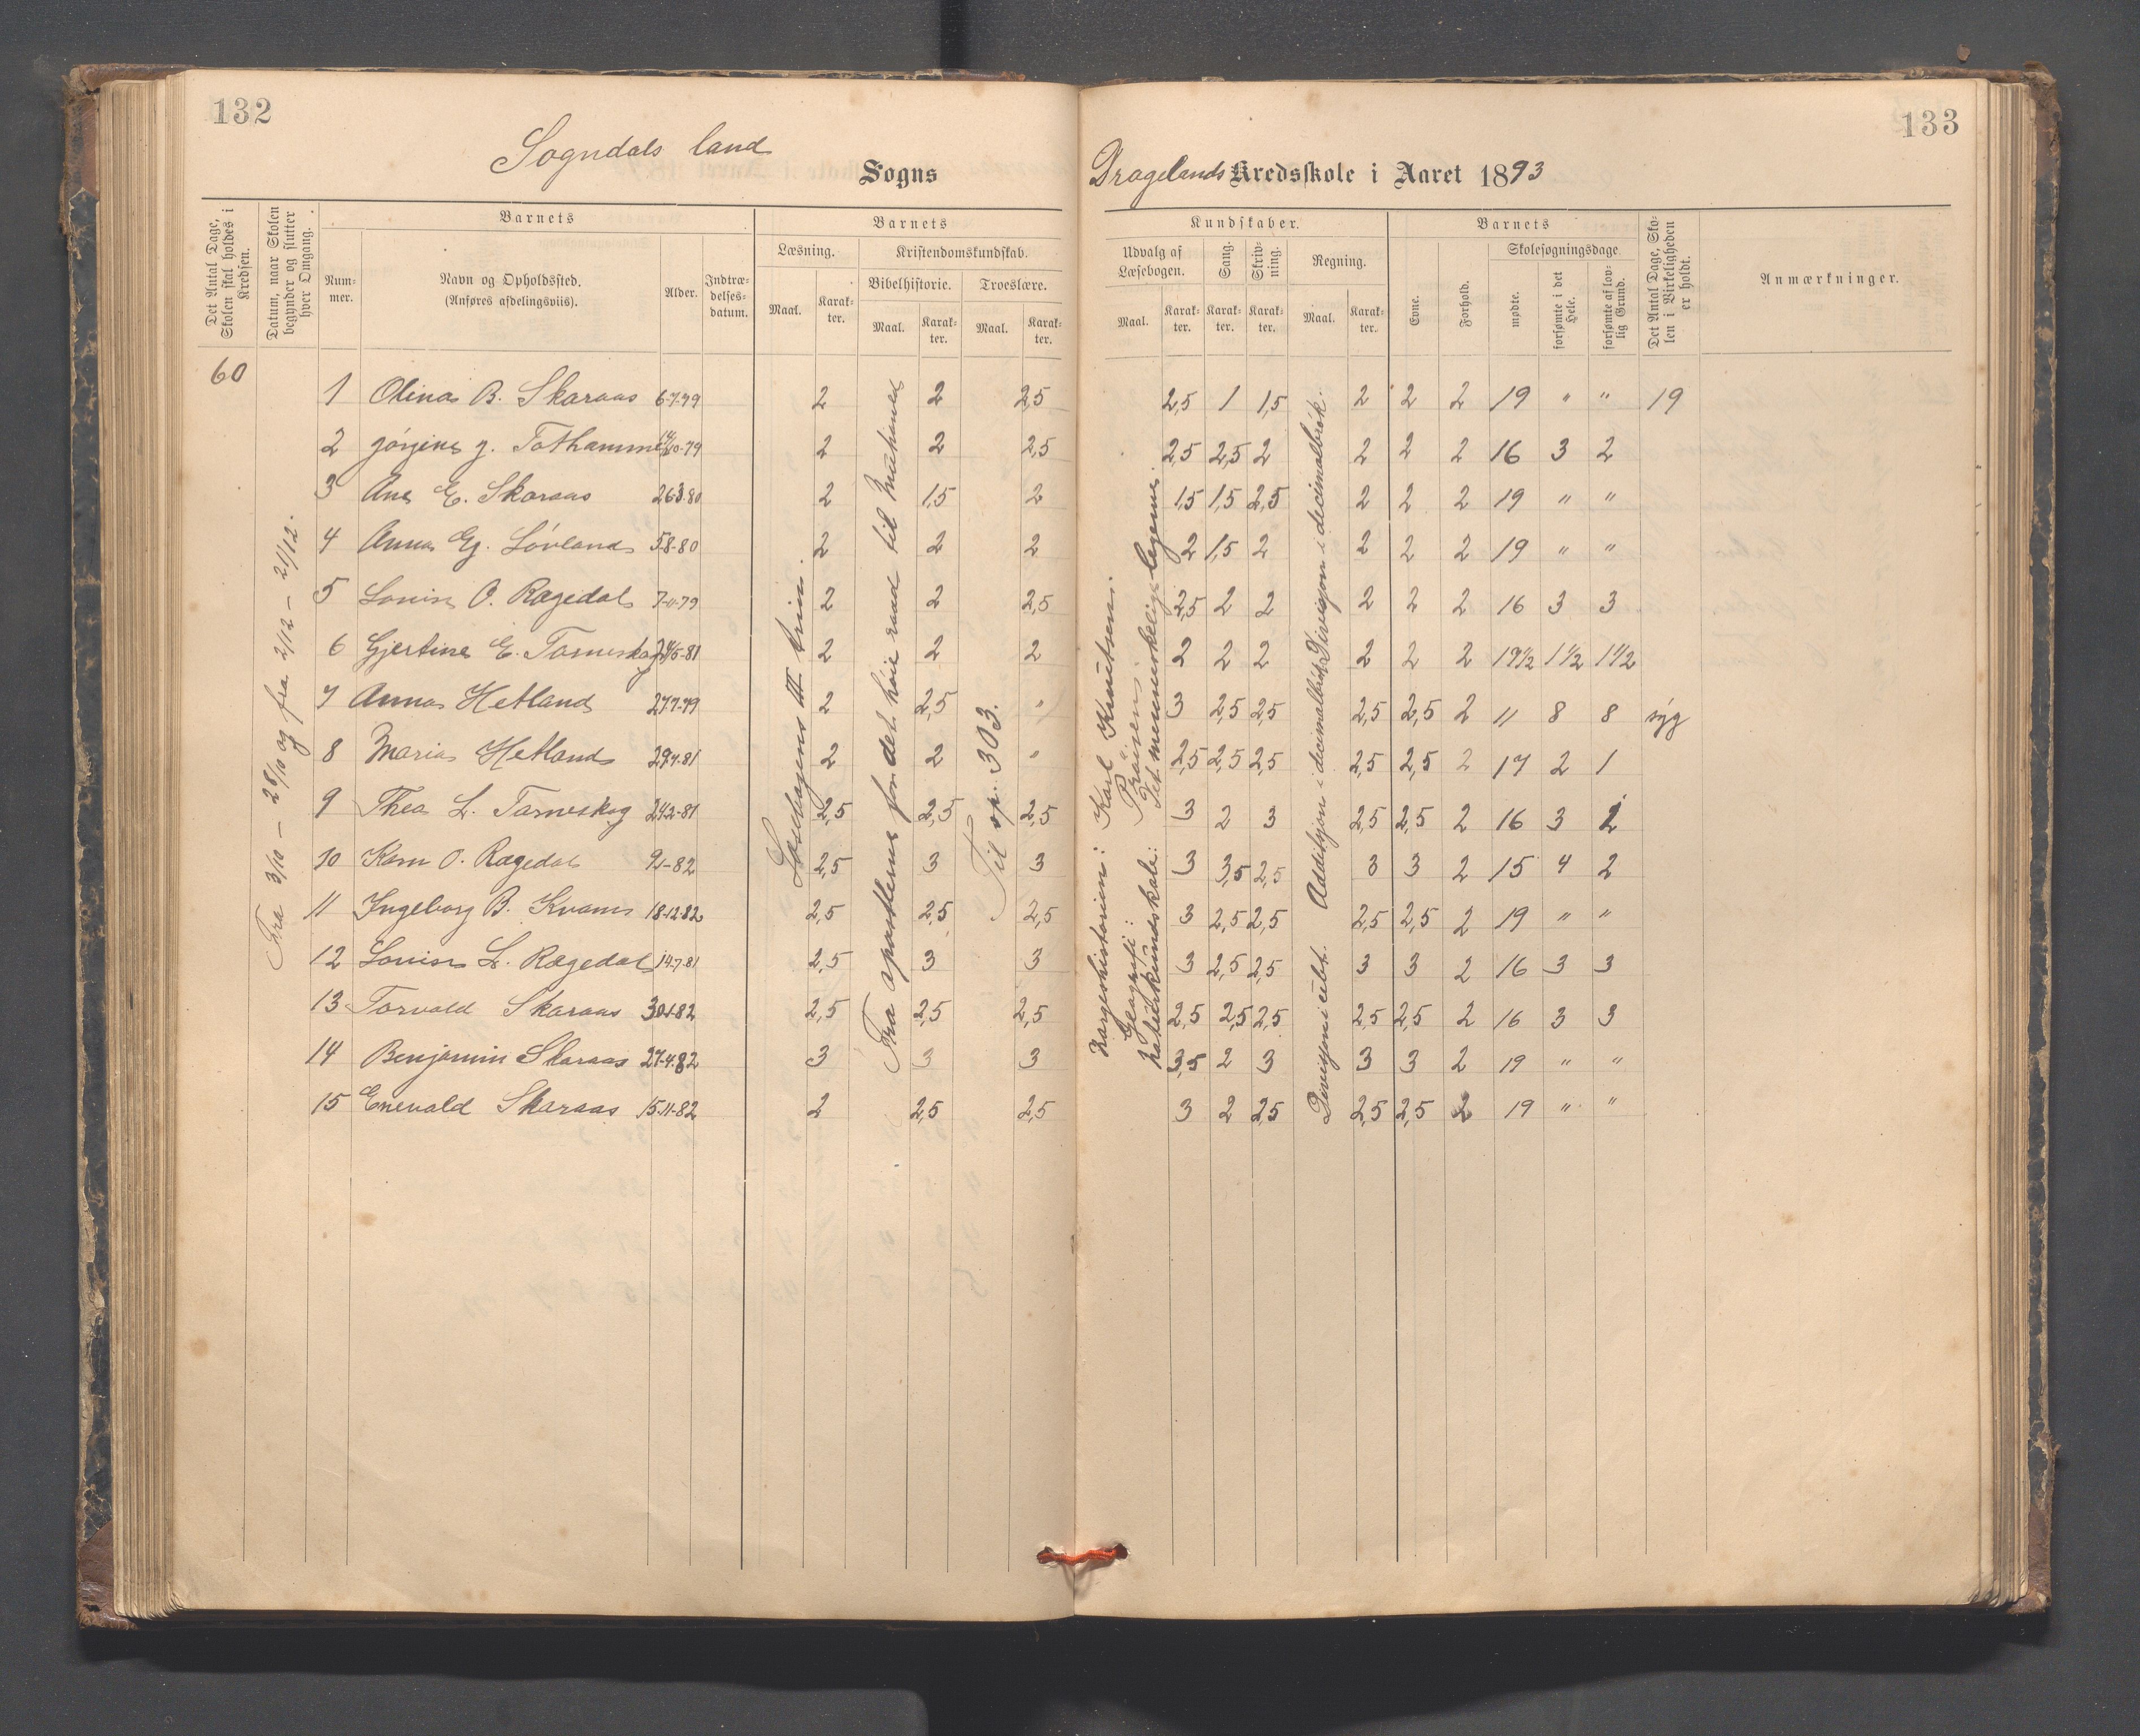 132
133
Sogndals land Sogns
Dragelands Kredsskole i Aaret 1893
Det Antal Dage, Skolen skal holdes i Kredsen.
Datum, naar Skolen begynder og slutter hver Omgang.
Barnets
Nummer.
Navn og Opholdssted.
(Anføres afdelingsviis).
Alder.
Indtrædelsesdatum.
Barnets
Læsning.
Maal.
Karakter.
Kristendomskundskab.
Bibelhistorie.
Maal.
Karakter.
Troeslære.
Maal.
Karakter.
Kundskaber.
Udvalg af Læsebogen.
Maal.
Karakter.
Sang.
Karakter.
Skrivning.
Karakter.
Regning.
Maal.
Karakter.
Barnets
Evne.
Forhold.
Skolesøgningsdage.
mødte.
forsømte i det Hele.
forsømte af lovlig Grund.
Det Antal Dage, Skolen i Virkeligheden er holdt.
Anmærkninger.
60
Fra 3/10 – 28/10 og fra 2/12 – 21/12.
Læsebogens III trin.
Fra apostlerne for det høie raad til
Til sp. 303.
Norgeshistorien: Karl Knutsen.
Geografi: Prøisen.
Naturkundskab: Det menneskelige legeme.
Divisjon i ubt. Addisjon i decimalbrøk Divisjon i decimalbrøk.
1 Olina B. Skaraas 6-7-79 2 2 2,5 2,5 1 1,5 2 2 2 19 " " 19
2 Jørgine J. Tothammer 14/10-79 2 2 2,5 2,5 2,5 2 2 2 2 16 3 2
3 Ane E. Skaraas 26-3-80 2 1,5 2 1,5 1,5 2,5 2 2 2 19 " "
4 Anna Eg. Løvland 5-8-80 2 2 2 2 1,5 2 2 2 2 19 " "
5 Lovise O. Rægedal 7-11-79 2 2 2,5 2,5 2 2 2 2 2 16 3 3
6 Gjertine E. Tarneskog 24/5-81 2 2 2 2 2 2 2 2 2 19 1/2 1 1/2 1 1/2
7 Anna Hetland 27-7-79 2 2,5 " 3 2,5 2,5 2,5 2,5 2 11 8 8 syg
8 Maria Hetland 29-7-81 2 2 " 2,5 2,5 2,5 2,5 2,5 2 17 2 1
9 Thea L. Tarneskog 24-2-81 2,5 2,5 2,5 3 2 3 2,5 2,5 2 16 3 2
10 Karn O. Rægedal 9-1-82 2,5 3 3 3 3,5 2,5 3 3 2 15 4 2
11 Ingeborg B. Kvam 18-12-82 2,5 2,5 2,5 3 2,5 2,5 2,5 2,5 2 19 " "
12 Lovise L. Rægedal 14-7-81 2,5 3 3 3 2,5 2,5 3 3 2 16 3 3
13 Torvald Skaraas 30-1-82 2,5 2,5 2,5 2,5 2,5 2,5 2,5 2,5 2 16 3 3
14 Benjamin Skaraas 27-4-82 3 3 3 3,5 2 3 3 3 2 19 " "
15 Enevald Skaraas 15-11-82 2 2,5 2,5 3 2 2,5 2,5 2,5 2 19 " "